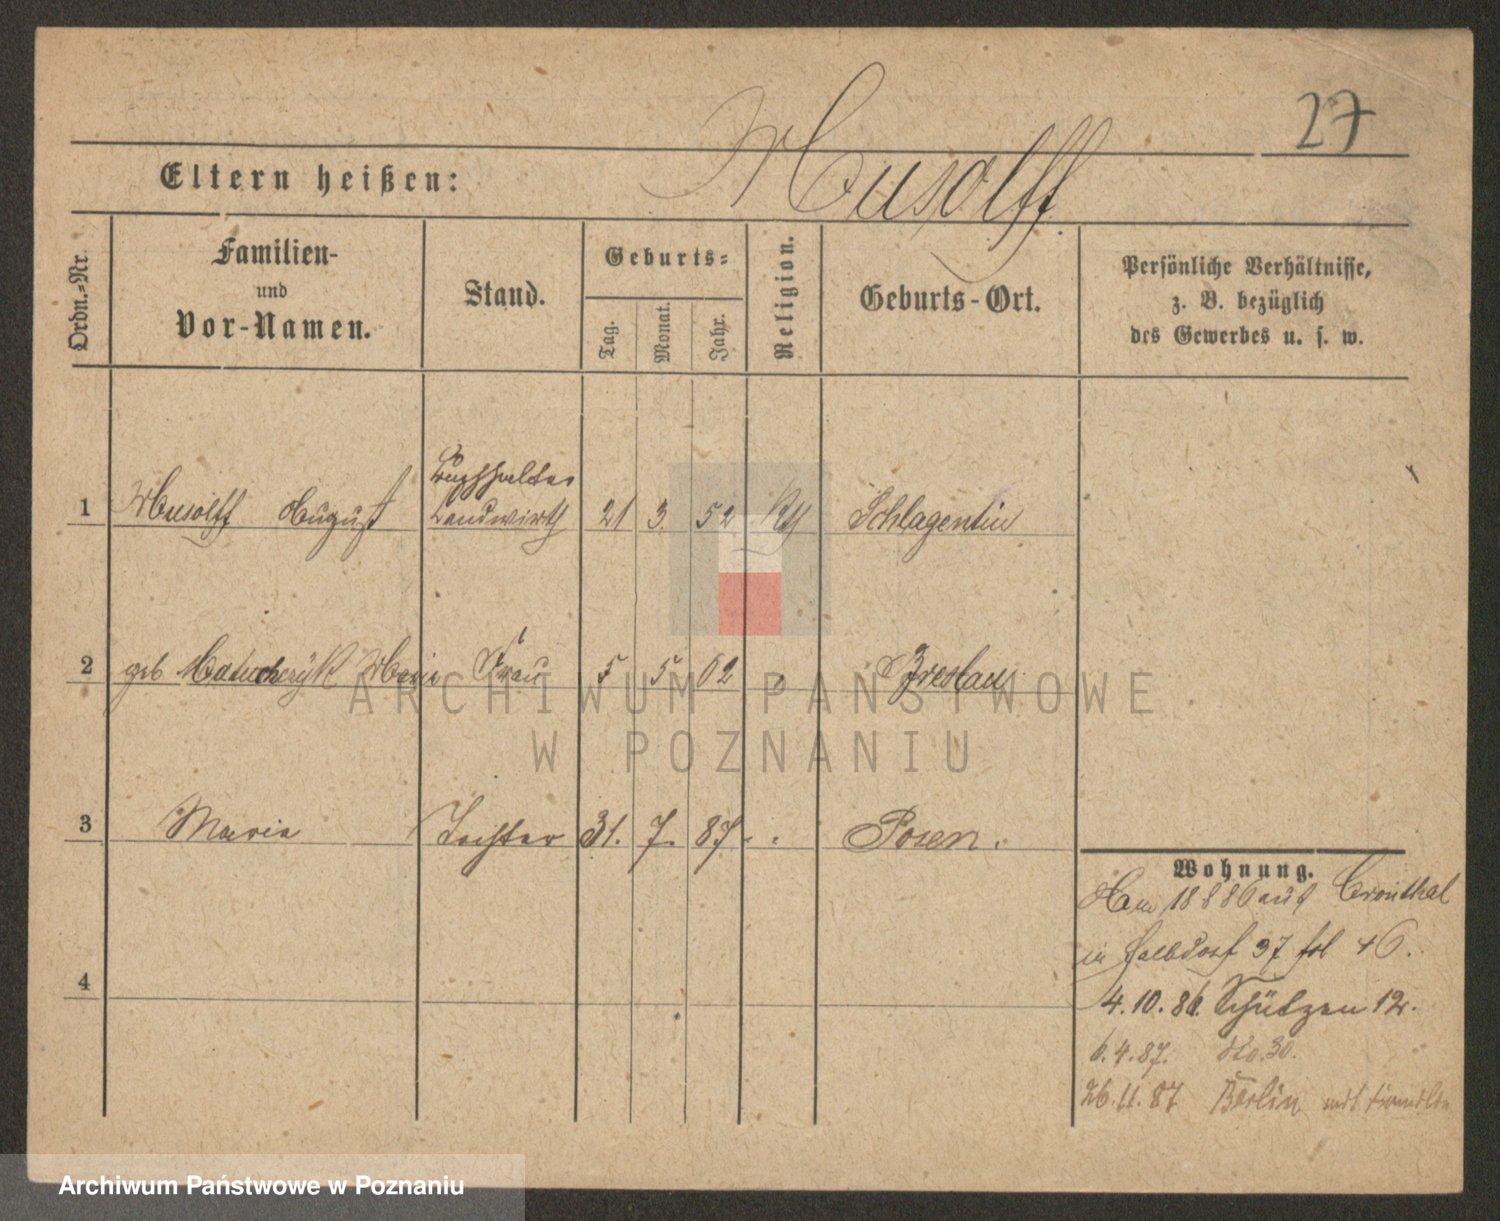 27
Musolff
Eltern heißen:
Ordn.=Nr.
Familien-
und
Vor-Namen.
Stand.
Geburts=
Tag.
Monat.
Jahr.
Religion.
Geburts-Ort.
Persönliche Verhältnisse,
z. B. bezüglich
des Gewerbes u. s. w.
Buchhalter
1 Musolff August Landwirth 21 3. 52 Schlagentin
2 geb Maria Frau 5 5 62 " Breslau
3 Maria Tochter 31. 7. 87 " Posen.
4
Wohnung.
Cronthal
in 37 fol 46.
4.10.86. Schützen 12.
6.4.87. dto. 30.
26.11.87 Berlin
ARCHIWUM PAŃSTWOWE
W POZNANIU
Archiwum Państwowe w Poznaniu